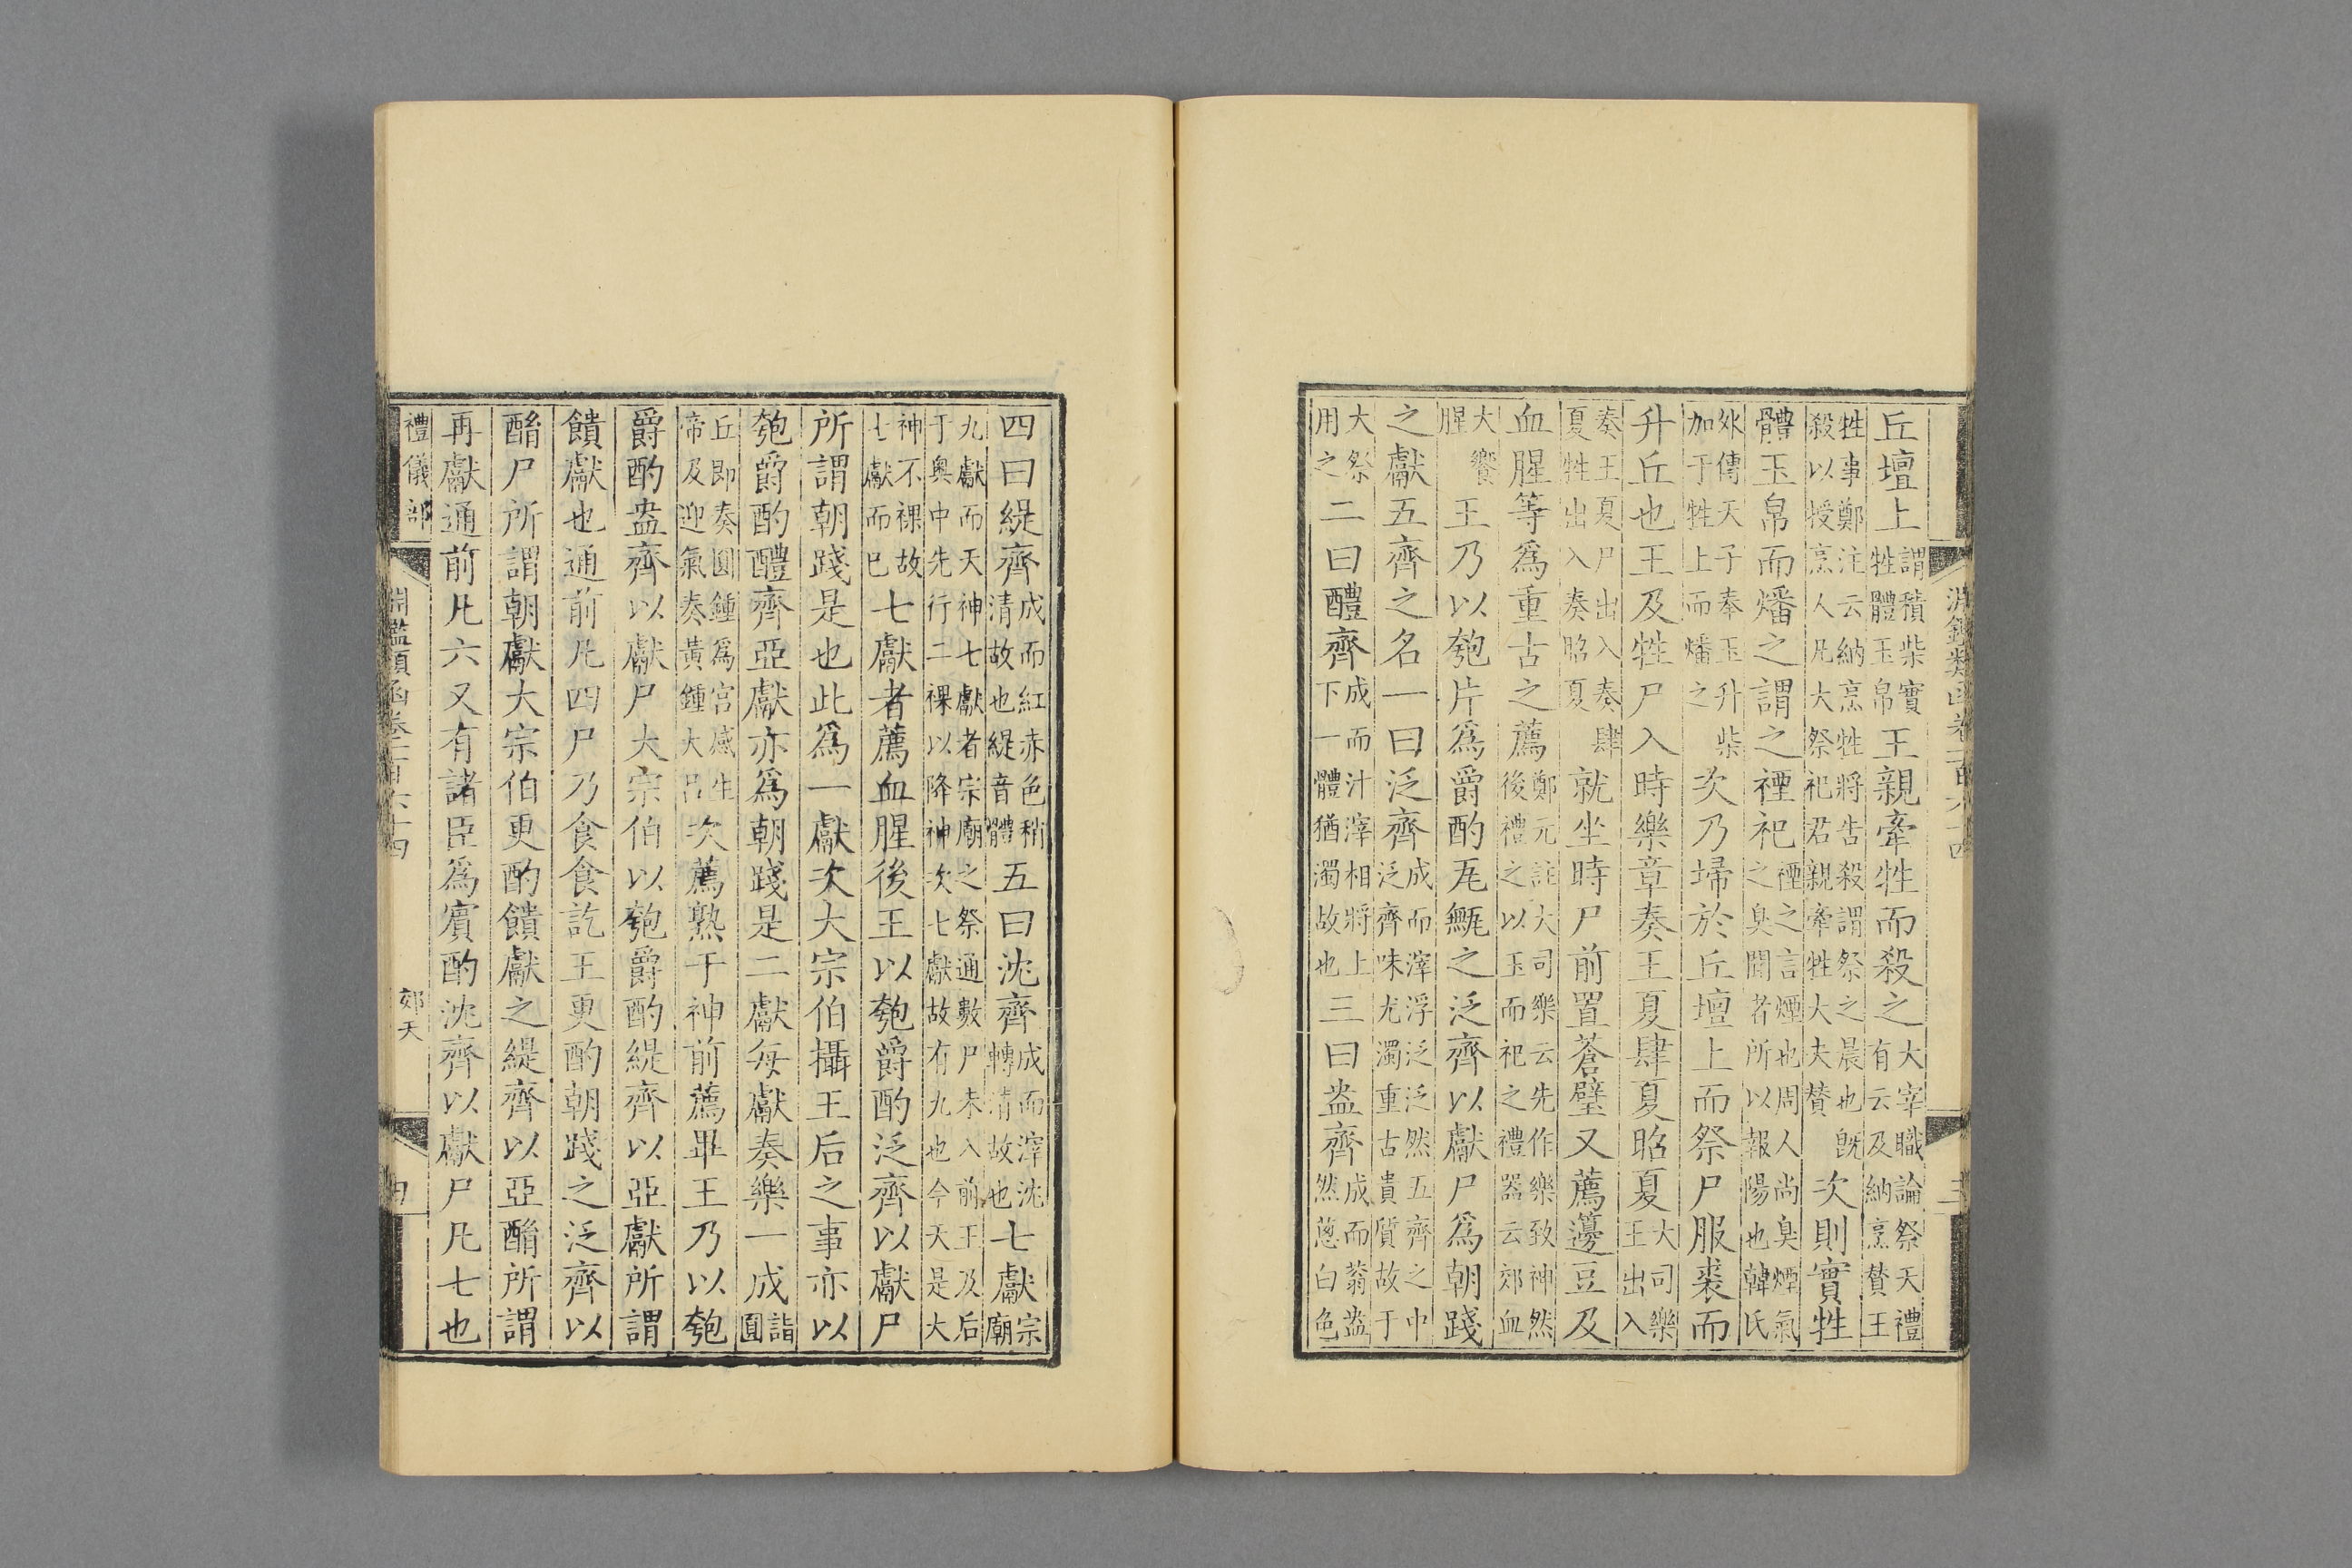 丘壇上謂積柴實牲體玉帛王親牽牲而殺之大宰職論祭天禮有云及納烹贊王
牲事鄭注云納烹牲將告殺謂祭之晨也旣殺以授烹人凡大祭祀君親牽牲大夫贊次則實牲
體玉帛而燔之謂之禋祀禋之言煙也周人尚臭煙氣之臭聞者所以報陽也韓氏
外傳天子奉玉升柴加于牲上而燔之次乃埽於丘壇上而祭尸服裘而
升丘也王及牲尸入時樂章奏王夏肆夏昭夏大司樂王出入
奏王夏尸出入奏肆夏牲出入奏昭夏就坐時尸前置蒼璧又薦籩豆及
血腥等爲重古之薦鄭元註大司樂云先作樂致神然後禮之以玉而祀之禮器云郊血
大饗腥王乃以匏片爲爵酌瓦甒之泛齊以獻尸爲朝踐
之獻五齊之名一曰泛齊成而滓浮泛泛然五齊之中泛齊味尤濁重古貴質故于
大祭用之二曰醴齊成而汁滓相將上下一體猶濁故也三曰盎齊成而蓊盎然葱白色
淵鑑類函卷一百六十四
三
四曰緹齊成而紅赤色稍清故也緹音體五曰沈齊成而滓沈轉清故也七獻宗廟
九獻而天神七獻者宗廟之祭通數尸未入前王及后于奧中先行二祼以降神次七獻故有九也今天是大
神不祼故七獻而已七獻者薦血腥後王以匏爵酌泛齊以獻尸
所謂朝踐是也此爲一獻次大宗伯攝王后之事亦以
匏爵酌醴齊亞獻亦爲朝踐是二獻每獻奏樂一成詣圓
丘即奏圜鍾爲宮感生帝及迎氣奏黃鍾大呂次薦熟于神前薦畢王乃以匏
爵酌盎齊以獻尸大宗伯以匏爵酌緹齊以亞獻所謂
饋獻也通前凡四尸乃食食訖王更酌朝踐之泛齊以
酳尸所謂朝獻大宗伯更酌饋獻之緹齊以亞酳所謂
再獻通前凡六又有諸臣爲賓酌沈齊以獻尸凡七也
禮儀部
淵鑑類函卷一百六十四
郊天
四